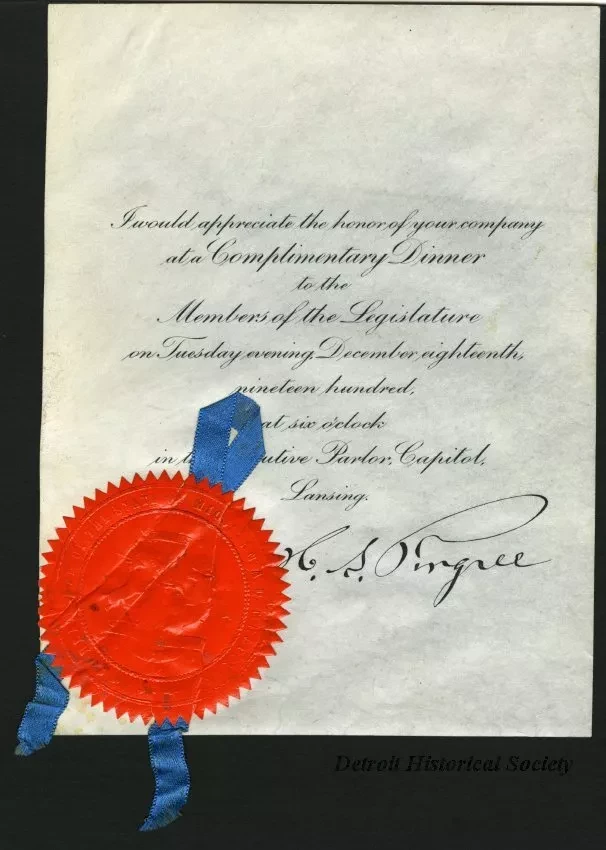 I would appreciate the honor of your company
at a Complimentary Dinner
to the
Members of the Legislature
on Tuesday evening, December eighteenth,
nineteen hundred,
at six o'clock
in t utive Parlor, Capitol,
Lansing.
H. S. Pingree
Detroit Historical Society